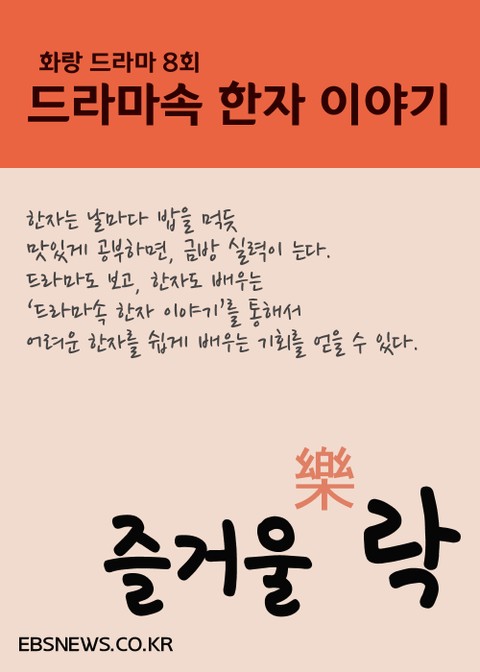 화랑 드라마 8회
드라마속 한자 이야기
한자는 날마다 밥을 먹듯
맛있게 공부하면, 금방 실력이 는다.
드라마도 보고, 한자도 배우는
‘드라마속 한자 이야기’를 통해서
어려운 한자를 쉽게 배우는 기회를 얻을 수 있다.
樂
즐거울 락
EBSNEWS.CO.KR